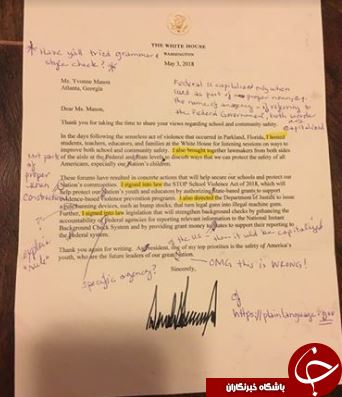 THE WHITE HOUSE
WASHINGTON
May 3, 2018
* Have y'all tried grammar &
style check? *
Ms. Yvonne Mason
Atlanta, Georgia
Federal is capitalized only when
used as part of proper noun, e.g.
the name of an agency - if referring to
the Federal Government, both words
capitalized
Dear Ms. Mason,
Thank you for taking the time to share your views regarding school and community safety.
In the days following the senseless act of violence that occurred in Parkland, Florida, I hosted
students, teachers, educators, and families at the White House for listening sessions on ways to
improve both school and community safety. I also brought together lawmakers from both sides
of the aisle at the Federal and State levels to discuss ways that we can protect the safety of all
Americans, especially our Nation's children.
not part
of
proper
noun
construction
These forums have resulted in concrete actions that will help secure our schools and protect our
Nation's communities. I signed into law the STOP School Violence Act of 2018, which will
help protect our Nation's youth and educators by authorizing State-based grants to support
evidence-based violence prevention programs. I also directed the Department of Justice to issue
a rule banning devices, such as bump stocks, that turn legal guns into illegal machine guns.
Further, I signed into law legislation that will strengthen background checks by enhancing the
accountability of Federal agencies for reporting relevant information to the National Instant
Background Check System and by providing grant money to States to support their reporting to
the Federal system.
explain
"rule"
of the US - then it would be capitalized
Thank you again for writing. As President, one of my top priorities is the safety of America's
youth, who are the future leaders of our great Nation.
OMG this is WRONG!
Sincerely,
specific agency?
https://plainlanguage.gov
باشگاه خبرنگاران